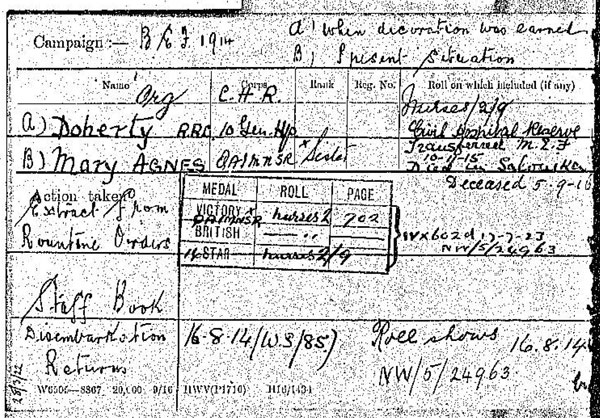 Campaign :— B E F 1914
A) When decoration was earned
B) Present situation
Name Corps Rank Reg. No. Roll on which included (if any)
Org C.H.R. Nurses/2/9
A) Doherty RRC 10 Gen. Hp Civil Hospital Reserve
Transferred M.E.F
10-11-15
B) Mary AGNES QAIMNSR Sister Died in Salonika
Deceased 5-9-16
Action taken
Extract from
Rountine Orders
MEDAL ROLL PAGE
VICTORY QAIMNSR nurses 2 702
BRITISH — " —
14 STAR nurses 2/9
IVX602d 17-7-23
NW/5/24963
Staff Book
Disembarkation
Returns
16-8-14 (WS/85)
Roll shows 16.8.14
NW/5/24963
28/3/22
W6506—8367 20,000 9/16 HWV(P1716) H16/1434